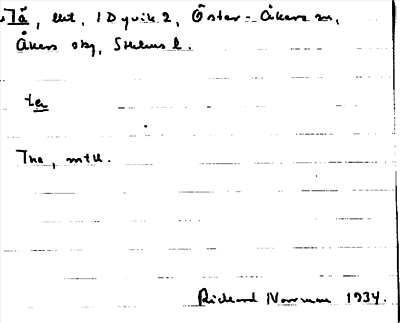 Tä, lht, I Dyvik 2, Öster-Åkers sn,
Åkers skg, Sthlms l.
ta
Tna, mtll.
Richard Norrman 1934.